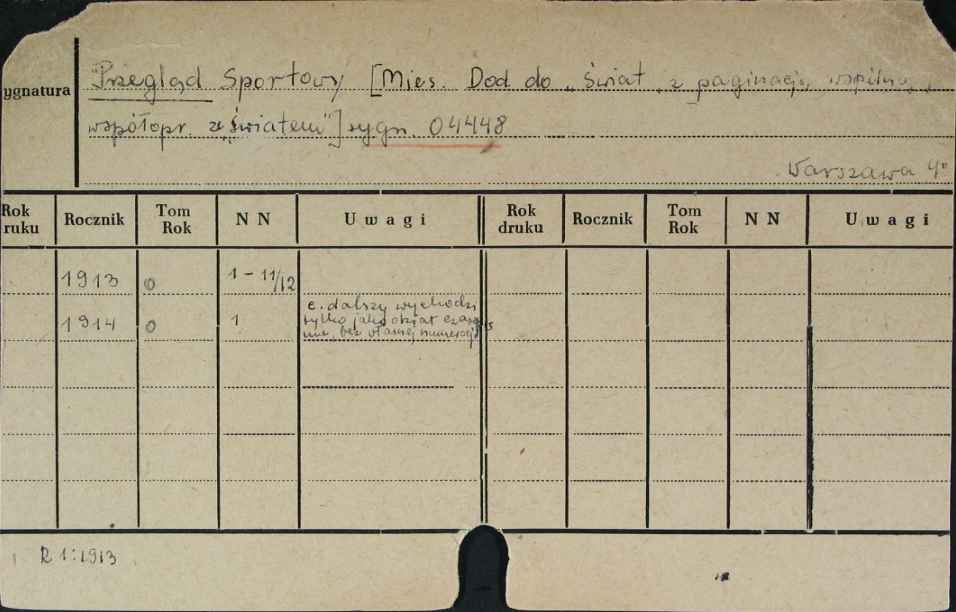 ygnatura
Przegląd Sportowy [Mies. Dod do „Świat„ z paginacją wspólną,
współopr. z „Światem"] sygn. 04448
Warszawa 4°
Rok ruku Rocznik Tom Rok N N Uwagi Rok druku Rocznik Tom Rok N N Uwagi
1913 0 1-11/12
1914 0 1 c. dalszy wychodzi
tylko jako dział czasopis
bez własnej numeracji
R 1:1913